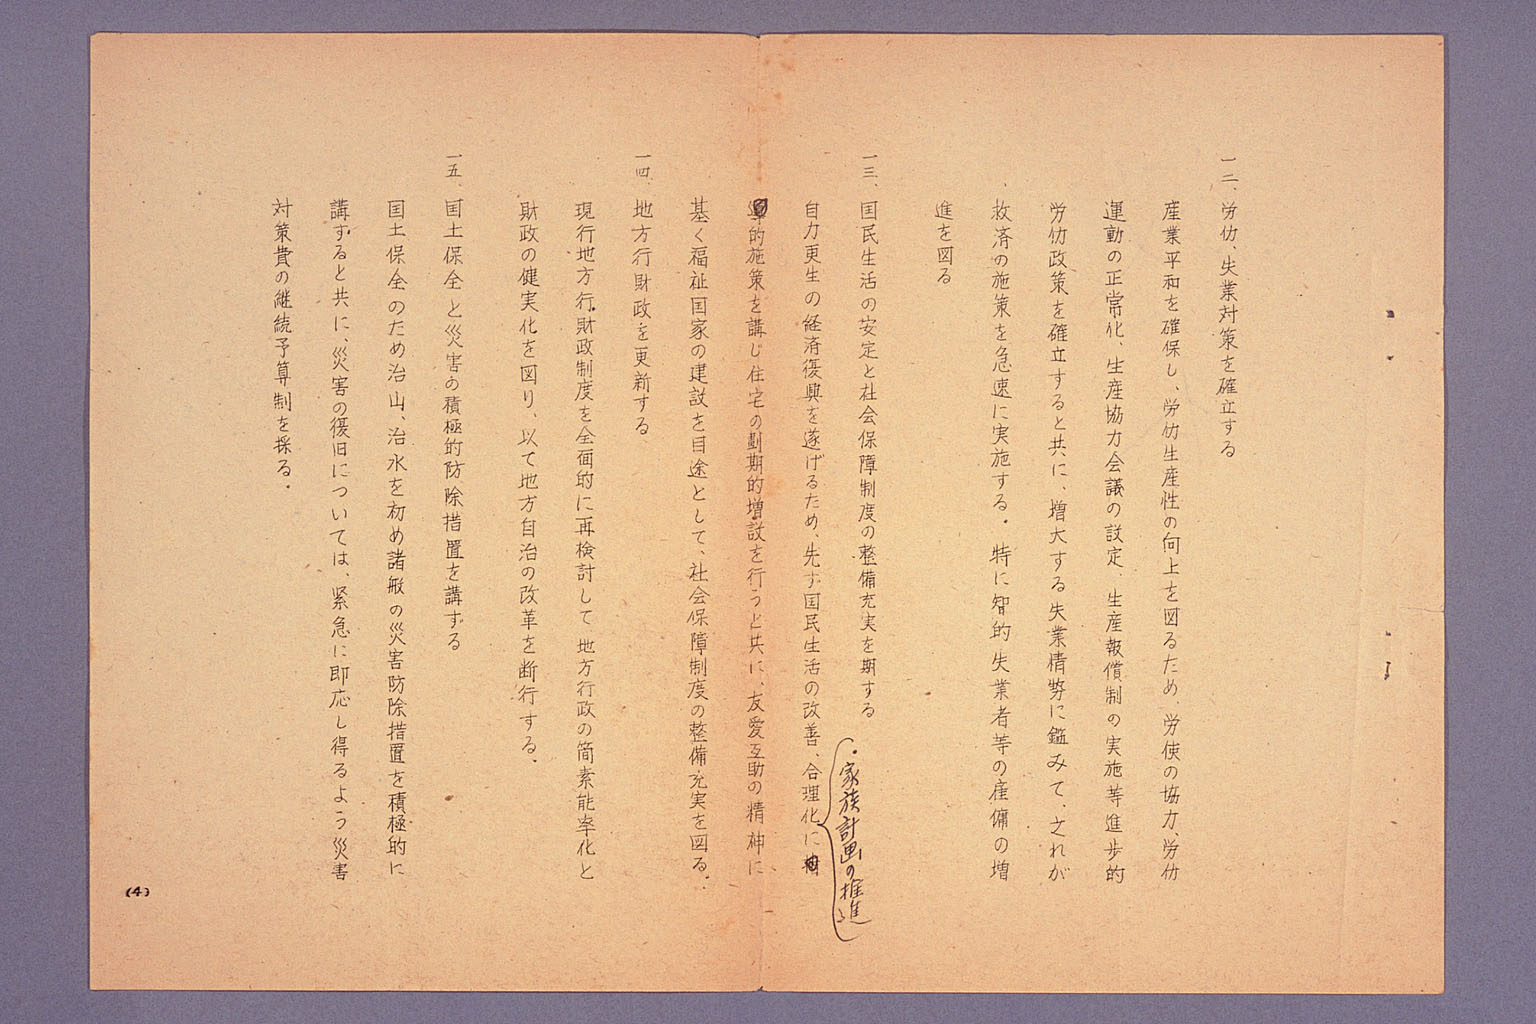 一二、労仂、失業対策を確立する
産業平和を確保し、労仂生産性の向上を図るため、労使の協力、労仂
運動の正常化、生産協力会議の設定、生産報償制の実施等進歩的
労仂政策を確立すると共に、増大する失業情勢に鑑みて、之れが
救済の施策を急速に実施する。特に智的失業者等の雇傭の増
進を図る
一三、国民生活の安定と社会保障制度の整備充実を期する
・家族計画の推進
自力更生の経済復興を遂げるため、先ず国民生活の改善、合理化に
的施策を講じ住宅の劃期的増設を行うと共に、友愛互助の精神に
基く福祉国家の建設を目途として、社会保障制度の整備充実を図る。
一四、地方行財政を更新する
現行地方行財政制度を全面的に再検討して地方行政の簡素能率化と
財政の健実化を図り、以て地方自治の改革を断行する。
一五、国土保全と災害の積極的防除措置を講ずる
国土保全のため治山、治水を初め諸般の災害防除措置を積極的に
講ずると共に、災害の復旧については、緊急に即応し得るよう災害
対策費の継続予算制を採る。
(4)